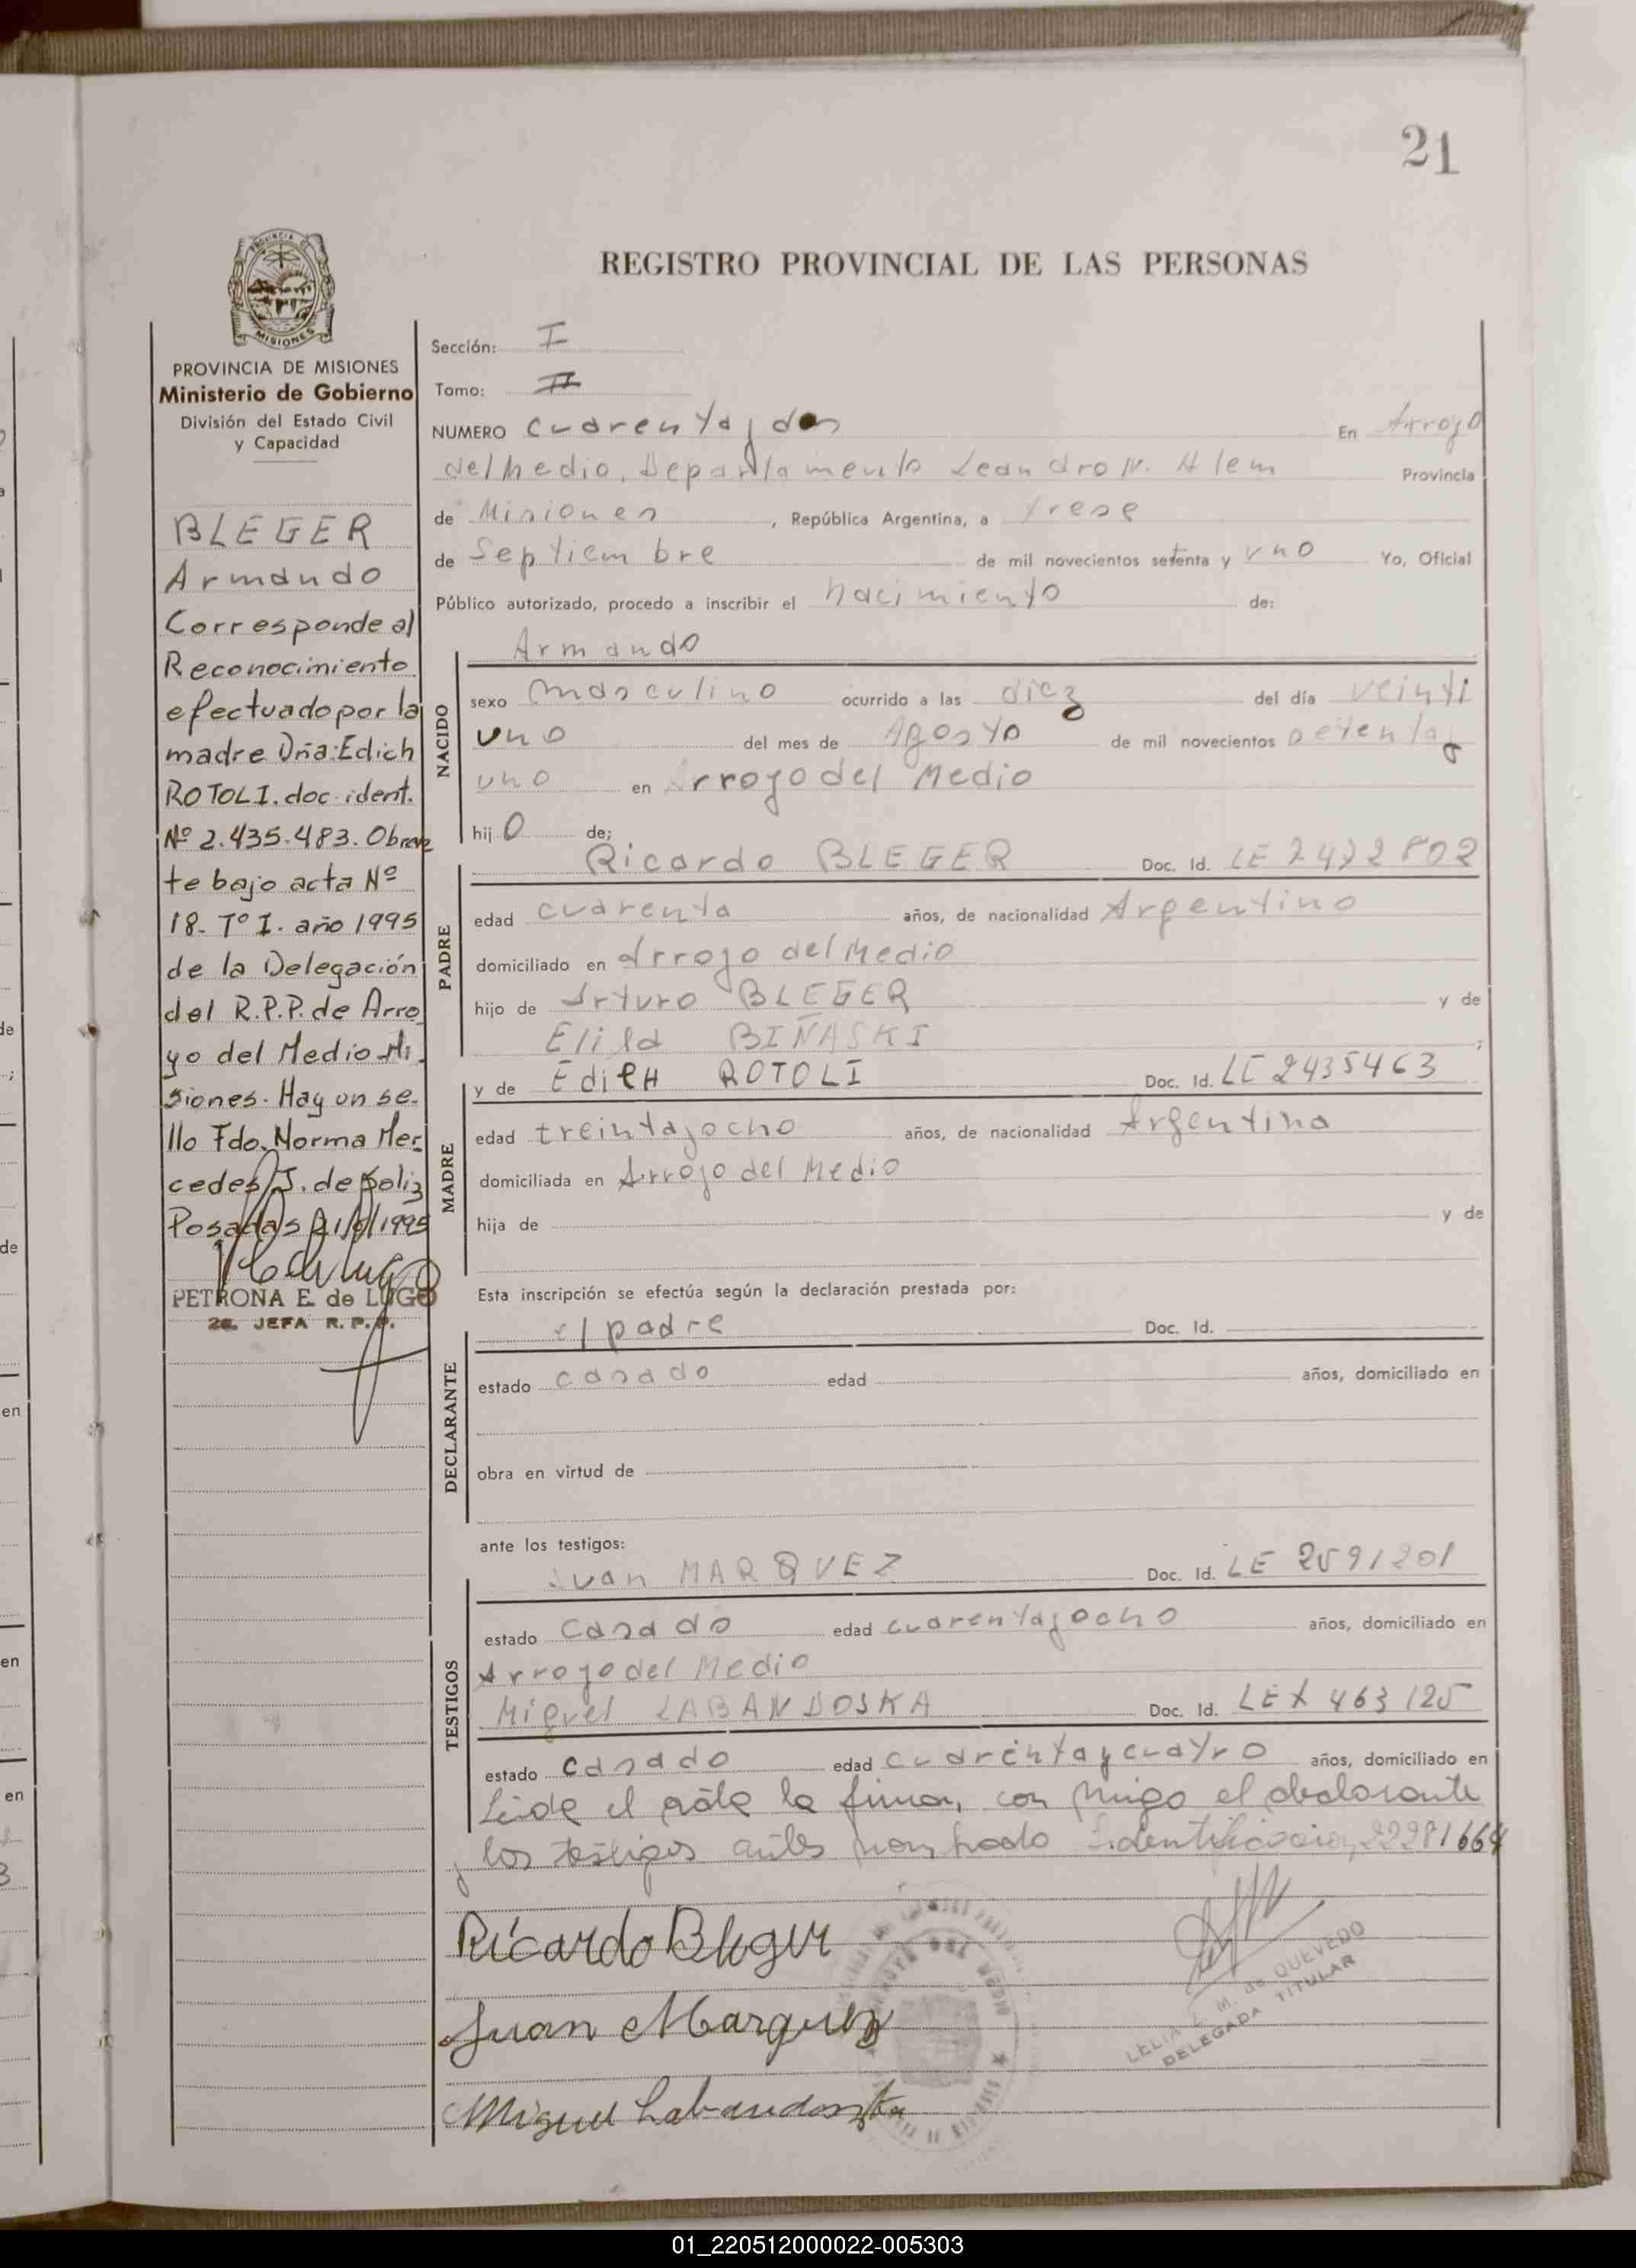 21
REGISTRO PROVINCIAL DE LAS PERSONAS
PROVINCIA DE MISIONES
Ministerio de Gobierno
División del Estado Civil
y Capacidad
BLEGER
Armando
Corresponde al
Reconocimiento
efectuado por la
madre Dña: Edich
ROTOLI. doc. ident.
Nº 2.435.483. Obran
te bajo acta Nº
18- Tº I. año 1995
de la Delegación
del R.P.P. de Arro
yo del Medio Mi
siones. Hay un se-
llo Fdo. Norma Mer
cedes J. de Soliz
Posadas 21/ /1995
PETRONA E. de LUGO
2a. JEFA R. P. P.
Sección: I
Tomo: II
NUMERO cuarenta y dos En Arroyo
del Medio, Departamento Leandro N. Alem Provincia
de Misiones, República Argentina, a trese
de Septiembre de mil novecientos setenta y uno Yo, Oficial
Público autorizado, procedo a inscribir el nacimiento de:
Armando
NACIDO
sexo masculino ocurrido a las diez del día veinti
uno del mes de Agosto de mil novecientos setenta y
uno en Arroyo del Medio
hij o de;
Ricardo BLEGER Doc. Id. LE 2492802
PADRE
edad cuarenta años, de nacionalidad Argentino
domiciliado en Arroyo del Medio
hijo de Arturo BLEGER y de
Elila BIÑASKI ;
y de EdieH ROTOLI Doc. Id. LC 2435463
MADRE
edad treinta y ocho años, de nacionalidad Argentina
domiciliada en Arroyo del Medio
hija de y de
Esta inscripción se efectúa según la declaración prestada por:
el padre Doc. Id.
DECLARANTE
estado casado edad años, domiciliado en
obra en virtud de
ante los testigos:
Juan MARQUEZ Doc. Id. LE 2591201
TESTIGOS
estado casado edad cuarenta y ocho años, domiciliado en
Arroyo del Medio
Miguel LABANDOSKA Doc. Id. LEX 463125
estado casado edad cuarenta y cuatro años, domiciliado en
Leida el acta la firman, con migo el declarante
y los testigos antes nombrado Identificacion 22281664
Ricardo Bleger
Juan Marquez
Miguel Labandoska
LELIA L. M. de QUEVEDO
DELEGADA TITULAR
01_220512000022-005303